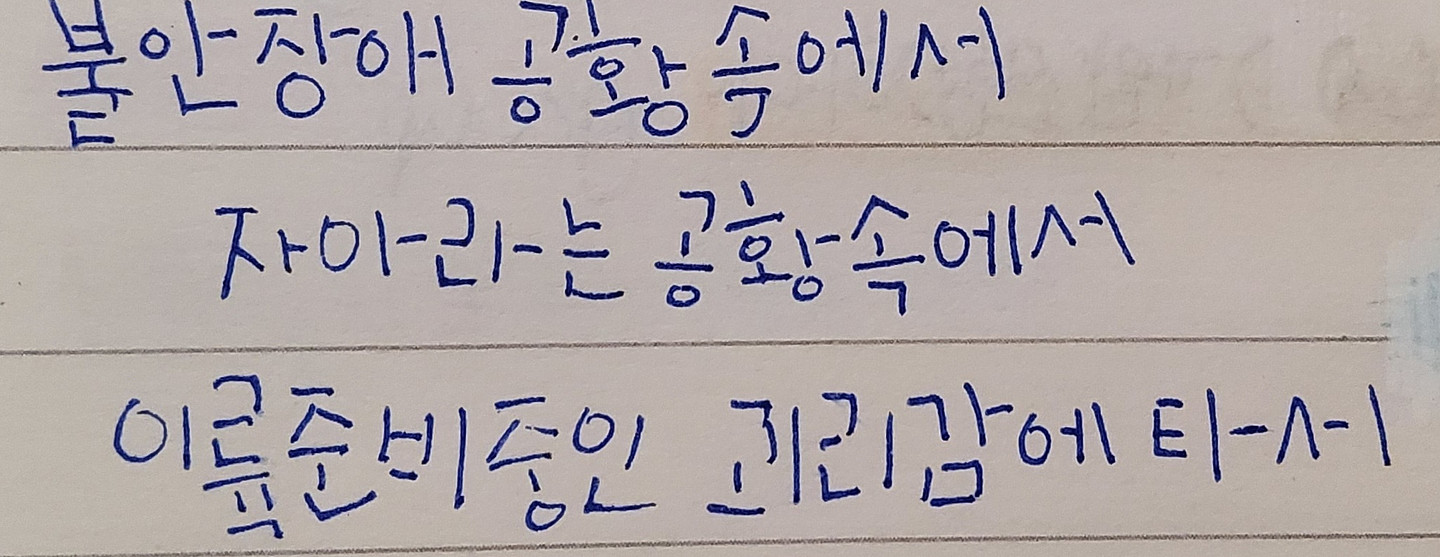 불안장애 공황 속에서
자아라는 공황속에서
이륙준비중인 괴리감에 타서